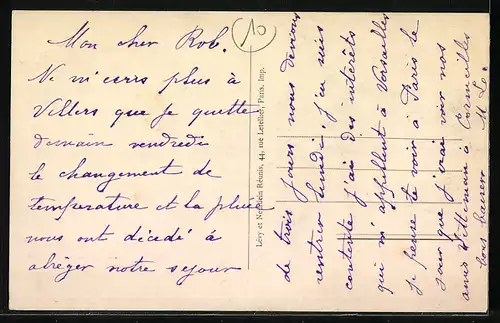 Mon cher Rob.
Ne m'ecris plus à
Villers que je quitte
demain vendredi
le changement de
temperature et la pluie
nous ont décédé à
abréger notre sejour
de trois jours nous devons
rentrer lundi. j'en suis
contente j'ai des intérêts
qui m'appellent à Versailles
je pense te voir à Paris le
jour que j'irai voir nos
amis à Cormeilles
bons baisers M. L.
10
Lévy et Neurdein Réunis, 44, rue Letellier, Paris, Imp.